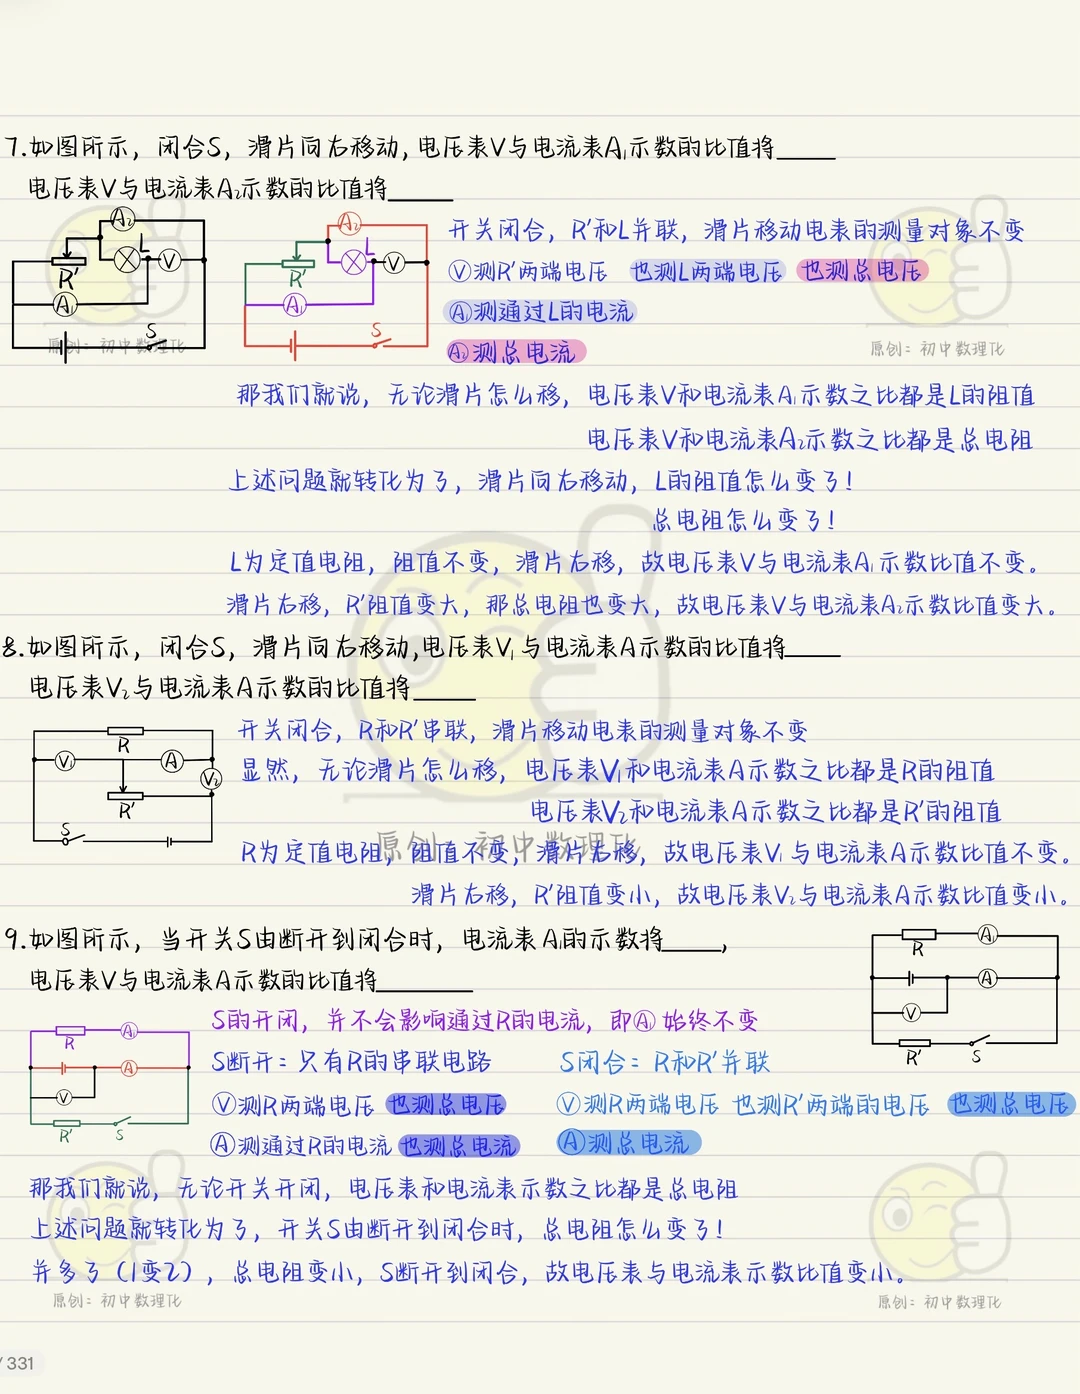 7.如图所示，闭合S，滑片向右移动，电压表V与电流表A₁示数的比值将____
电压表V与电流表A₂示数的比值将____
A₂
L
V
R'
A₁
S
A₂
L
V
R'
A₁
S
开关闭合，R'和L并联，滑片移动电表的测量对象不变
Ⓥ测R'两端电压 也测L两端电压 也测总电压
Ⓐ测通过L的电流
A₂测总电流
原创：初中数理化
原创：初中数理化
那我们就说，无论滑片怎么移，电压表V和电流表A₁示数之比都是L的阻值
电压表V和电流表A₂示数之比都是总电阻
上述问题就转化为了，滑片向右移动，L的阻值怎么变了！
总电阻怎么变了！
L为定值电阻，阻值不变，滑片右移，故电压表V与电流表A₁示数比值不变。
滑片右移，R'阻值变大，那总电阻也变大，故电压表V与电流表A₂示数比值变大。
8.如图所示，闭合S，滑片向右移动,电压表V₁与电流表A示数的比值将____
电压表V₂与电流表A示数的比值将____
R
V₁
A
V₂
R'
S
开关闭合，R和R'串联，滑片移动电表的测量对象不变
显然，无论滑片怎么移，电压表V₁和电流表A示数之比都是R的阻值
电压表V₂和电流表A示数之比都是R'的阻值
原创：初中数理化
R为定值电阻，阻值不变，滑片右移，故电压表V₁与电流表A示数比值不变。
滑片右移，R'阻值变小，故电压表V₂与电流表A示数比值变小。
9.如图所示，当开关S由断开到闭合时，电流表A₁的示数将____，
电压表V与电流表A示数的比值将____
R
A₁
A
V
R'
S
R
A₁
A
V
R'
S
S的开闭，并不会影响通过R的电流，即Ⓐ始终不变
S断开：只有R的串联电路 S闭合：R和R'并联
Ⓥ测R两端电压 也测总电压 Ⓥ测R两端电压 也测R'两端的电压 也测总电压
Ⓐ测通过R的电流 也测总电流 Ⓐ测总电流
那我们就说，无论开关开闭，电压表和电流表示数之比都是总电阻
上述问题就转化为了，开关S由断开到闭合时，总电阻怎么变了！
并多了（1变2），总电阻变小，S断开到闭合，故电压表与电流表示数比值变小。
原创：初中数理化
原创：初中数理化
/ 331